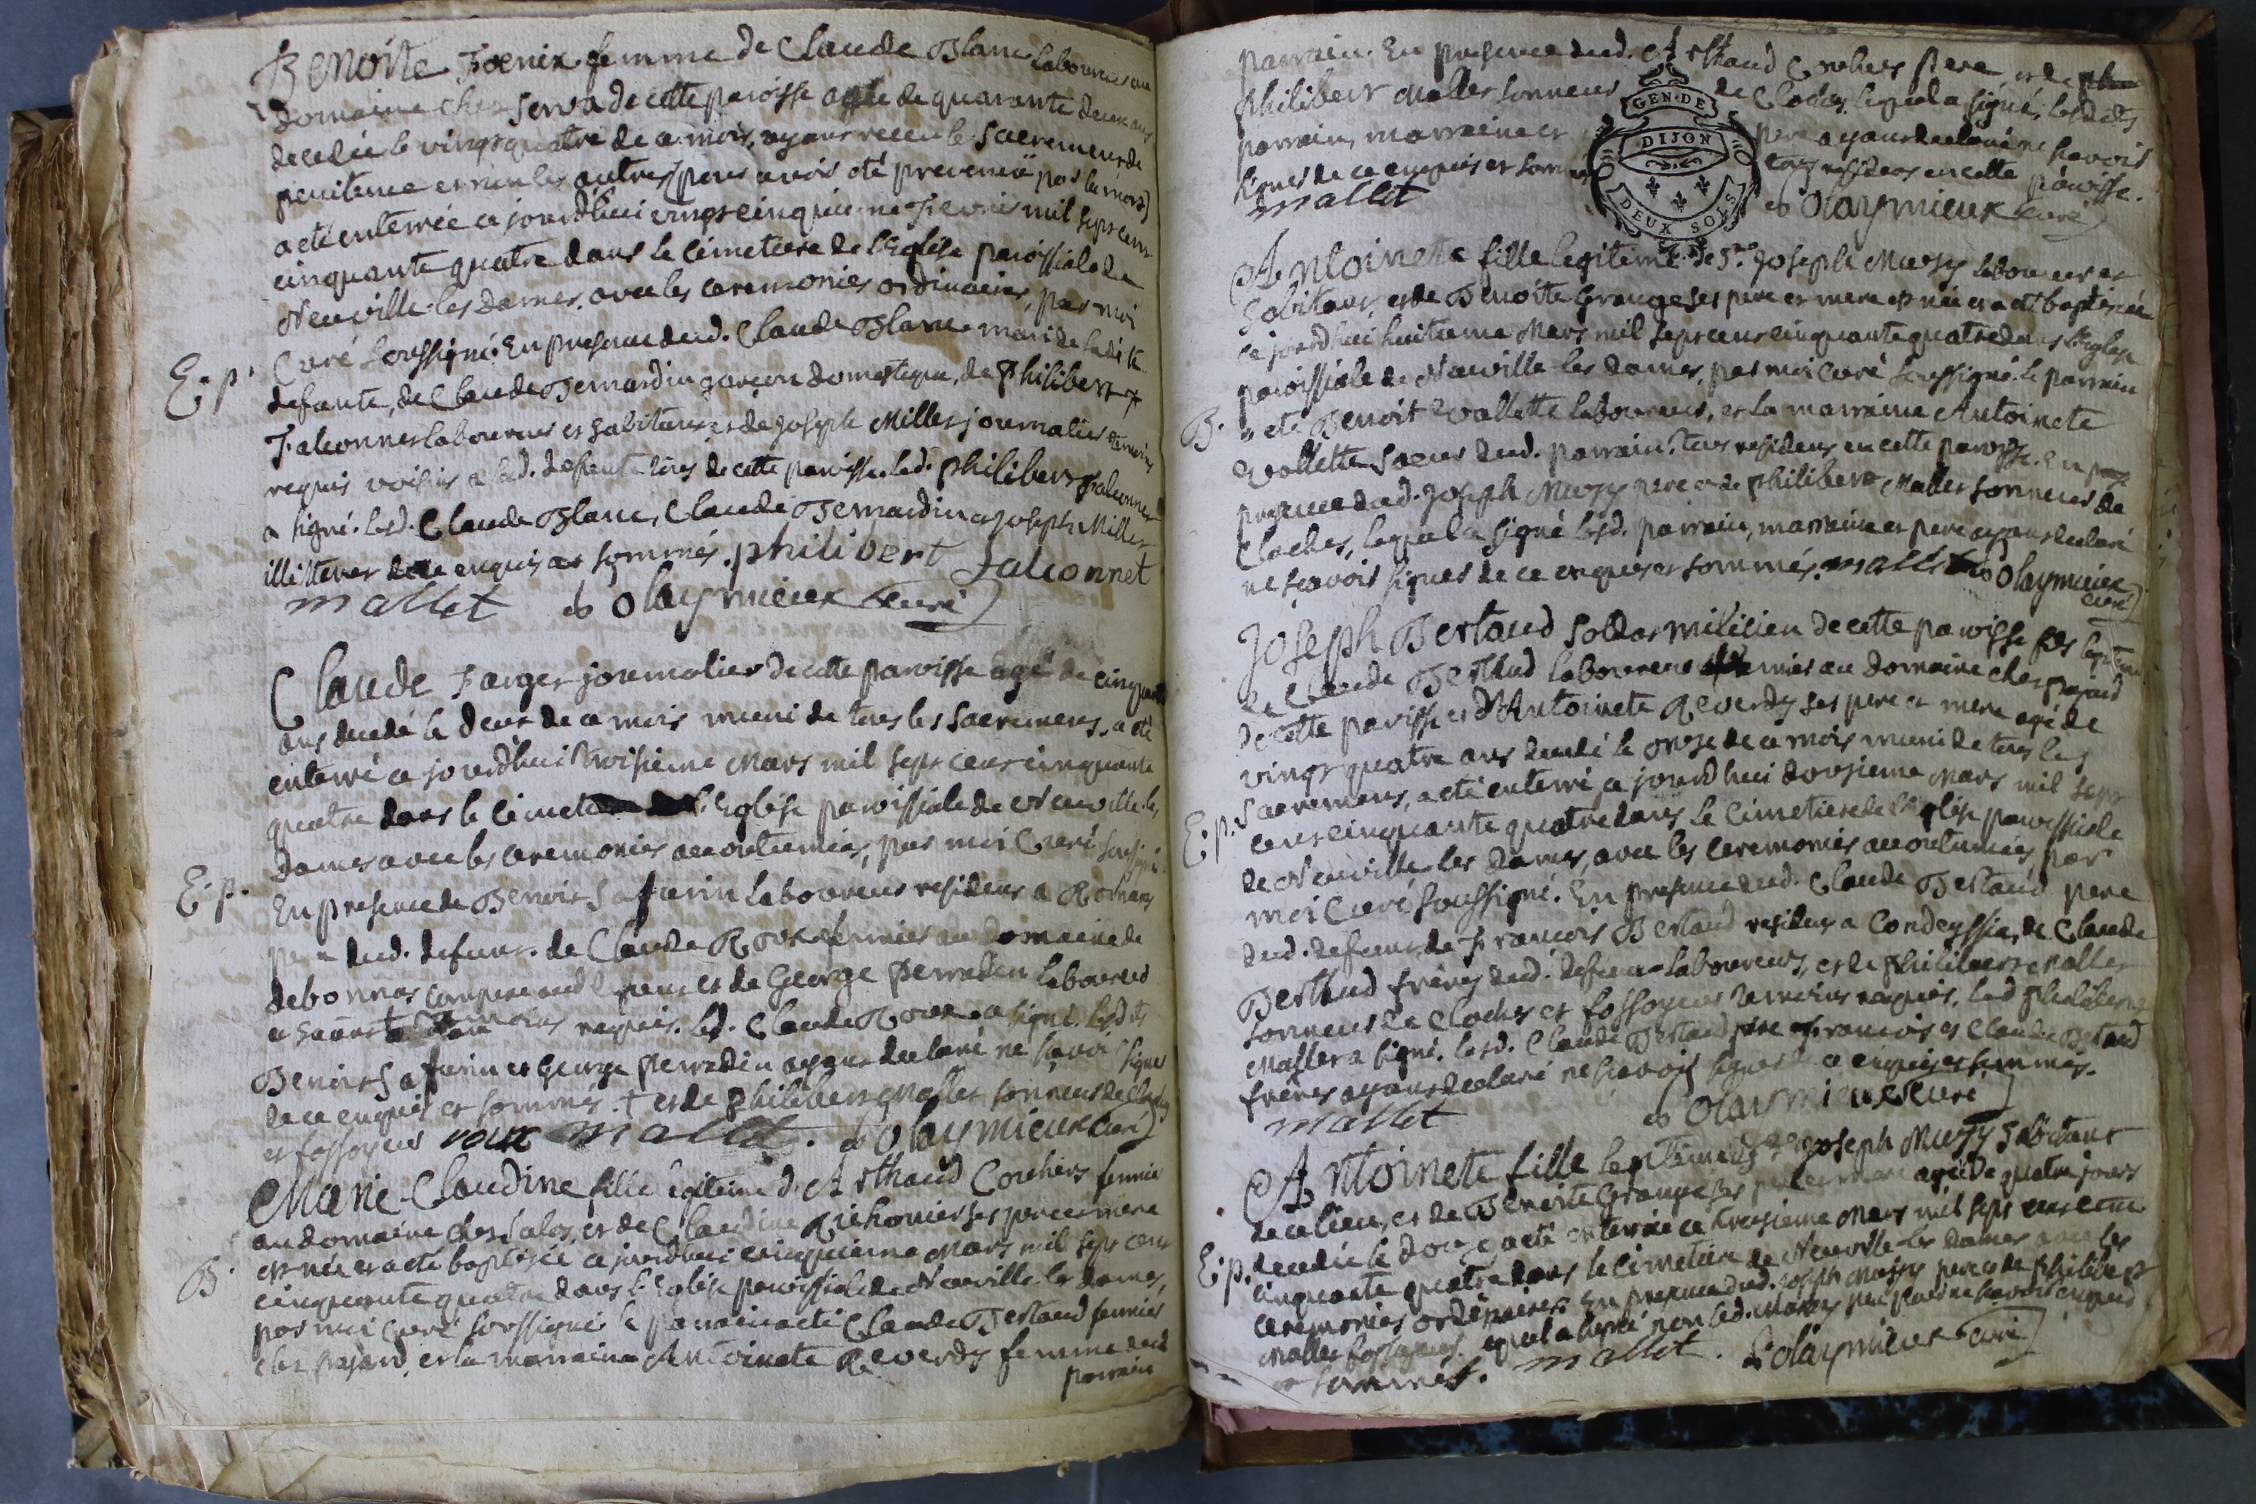 Benoite Foenix femme de Claude Blanc laboureur au
domaine chez Serva de cette paroisse agée de quarante deux ans
decedée le vingt quatre de ce mois, ayant receu le Sacrement de
penitence et non les autres (pour avoir été prevenuë par la mort)
a eté enterrée ce jourd'huï vingt cinquieme Fevrier mil sept cent
cinquante quatre dans le Cimetiere de l'Eglise paroissiale de
Neuville-les Dames, avec les ceremonies ordinaires, par moi
E. p. Curé soussigné. En presence dud. Claude Blanc mari de ladite
defunte, de Claude Bernardin garçon domestique, de Philibert
Falconnet laboureur et habitant et de Joseph Millet journalier temoins
requis voisins a lad. defunte tous de cette paroisse. led. Philibert Falconnet
a signé. lesd. Claude Blanc, Claude Bernardin et Joseph Millet
illitteres de ce enquis et sommés. philibert Falconnet
mallet Olaymieux Curé
Claude Farget journalier de cette paroisse agé de cinquante
ans decedé le deux de ce mois muni de tous les Sacremens, a eté
enterré ce jourd'hui troisieme Mars mil sept cent cinquante
quatre dans le l'Eglise paroissiale de Neuville-les
Dames avec les ceremonies accoutumées, par moi Curé soussigné
E. p. En presence de Benoit Safurin laboureur resident a Romans
dud. defunt. de Claude Roux fermier au domaine de
debonnas et de George Perradin laboureur
requis. led. Claude Roux a signé. lesdits
Benoit Safurin et George Perradin ayant declaré ne savoir signer
de ce enquis et sommés. + et de Philibert Mallet sonneur de Cloches
et fossoyeur roux mallet. Olaymieux Curé
Marie-Claudine fille legiteme d'Arthaud Corcher fermier
au domaine chez Salos, et de Claudine Richonier ses pere et mere
est née et a eté baptisée ce jourd'hui cinquieme Mars mil sept cent
B. cinquante quatre dans l'Eglise paroissiale de Neuville les dames,
par moi Curé soussigné le parrain a eté Claude Bertaud fermier
chez prajard et la marraine Antoinete Reverdy femme dud.
parrain
parrain. En presence dud. Arthaud pere et de
Philibert Mallet sonneur de Cloches lequel a signé, lesdits
parrain, marraine et pere ayant declaré ne sçavoir
signer de ce enquis et sommés tous residens en cette paroisse.
mallet Olaymieux Curé
GEN. DE
DIJON
DEUX SOLS
Antoinete fille legiteme de Sr. Joseph Muzy laboureur et
habitant, et de Benoite Grange ses pere et mere est née et a eté baptisée
ce jourd'hui huitieme Mars mil sept cent cinquante quatre dans l'Eglise
paroissiale de Neuville-les dames, par moi Curé soussigné. le parrain
B. a eté Benoit Vallette laboureur, et la marraine Antoinete
Vallette soeur dud. parrain. tous residens en cette paroisse. En
presence dud. Joseph Muzy pere et de Philibert Mallet sonneur de
Cloches, lequel a signé lesd. parrain, marraine et pere ayant declaré
ne sçavoir signer de ce enquis et sommés. mallet Olaymieux
curé
Joseph Bertaud soldat milicien de cette paroisse fils legiteme
de Claude Bertaud laboureur au domaine chez prajard
de cette paroisse et d'Antoinete Reverdy ses pere et mere agé de
vingt quatre ans decedé le onze de ce mois muni de tous les
Sacremens, a eté enterré ce jourd'hui douzieme Mars mil sept
E. p. cent cinquante quatre dans le Cimetiere de l'Eglise paroissiale
de Neuville-les Dames, avec les ceremonies accoutumées, par
moi Curé soussigné. En presence dud. Claude Bertaud pere
dud. defunt, de François Bertaud resident a Condeyssia, de Claude
Bertaud freres dud. defunt laboureurs, et de Philibert Mallet
sonneur de Cloches et fossoyeur temoins requis, led. Philibert
Mallet a signé. lesd. Claude Bertaud pere François et Claude Bertaud
freres ayant declaré ne sçavoir signer de ce enquis et sommés.
mallet Olaymieux Curé
Antoinete fille legiteme de Sr. Joseph Muzy habitant
de ce lieu, et de Benoite Grange ses pere et mere agée de quatre jours
decedée le douze a eté enterrée ce treizieme Mars mil sept cent
E. p. cinquante quatre dans le Cimetiere de Neuville-les Dames avec les
ceremonies ordinaires. En presence dud. Joseph Muzy pere et de Philibert
Mallet fossoyeur. lequel a signé non led. Muzy pere pour ne savoir enquis
et sommés. mallet. Olaymieux Curé